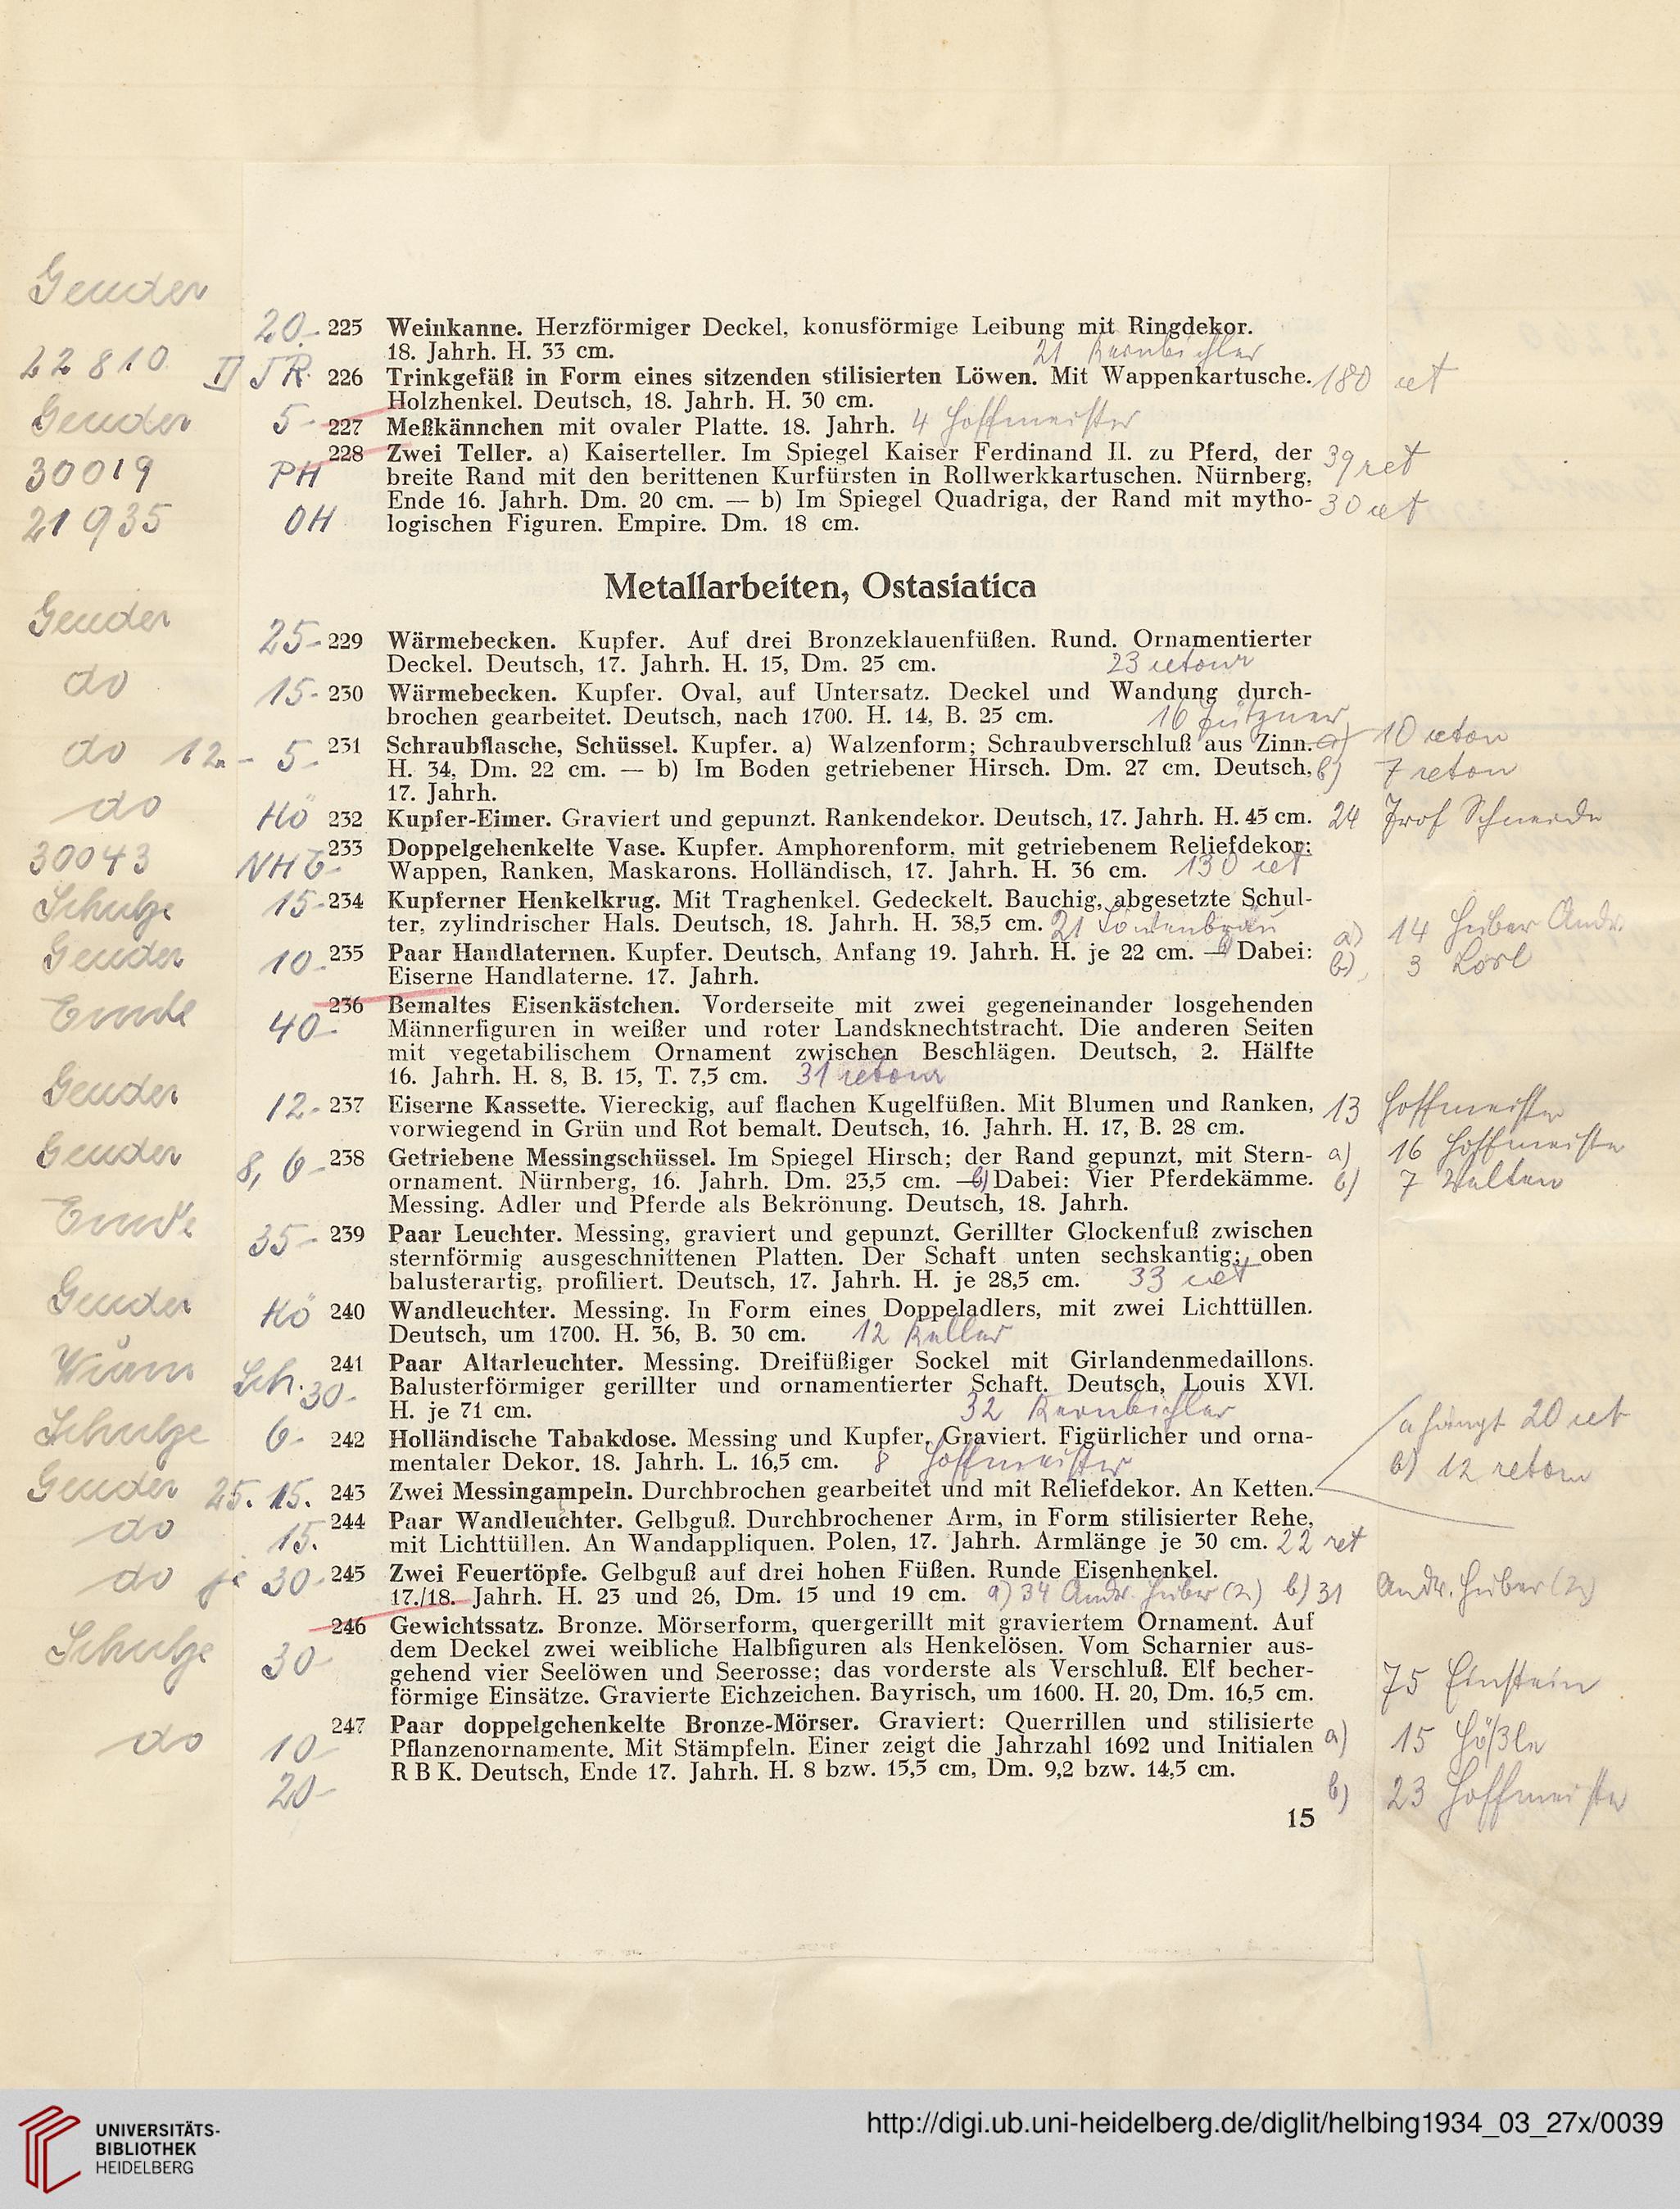 Gender
20.- 225 Weinkanne. Herzförmiger Deckel, konusförmige Leibung mit Ringdekor.
18. Jahrh. H. 33 cm. 21 Kernbichler
22810 II JR. 226 Trinkgefäß in Form eines sitzenden stilisierten Löwen. Mit Wappenkartusche. 180 ret
Holzhenkel. Deutsch, 18. Jahrh. H. 30 cm.
Gender 5- 227 Meßkännchen mit ovaler Platte. 18. Jahrh. 4 Hoffmeister
228 Zwei Teller. a) Kaiserteller. Im Spiegel Kaiser Ferdinand II. zu Pferd, der 39 ret
30019 PH breite Rand mit den berittenen Kurfürsten in Rollwerkkartuschen. Nürnberg,
Ende 16. Jahrh. Dm. 20 cm. — b) Im Spiegel Quadriga, der Rand mit mytho- 30 ret
21935 OH logischen Figuren. Empire. Dm. 18 cm.
Metallarbeiten, Ostasiatica
Gender 25- 229 Wärmebecken. Kupfer. Auf drei Bronzeklauenfüßen. Rund. Ornamentierter
Deckel. Deutsch, 17. Jahrh. H. 15, Dm. 25 cm. 23 retour
do 15- 230 Wärmebecken. Kupfer. Oval, auf Untersatz. Deckel und Wandung durch-
brochen gearbeitet. Deutsch, nach 1700. H. 14, B. 25 cm. 16
do 12.- 5.- 231 Schraubflasche, Schüssel. Kupfer. a) Walzenform; Schraubverschluß aus Zinn. a) 10 retour
H. 34, Dm. 22 cm. — b) Im Boden getriebener Hirsch. Dm. 27 cm. Deutsch, b) 7 retour
17. Jahrh.
do Kö 232 Kupfer-Eimer. Graviert und gepunzt. Rankendekor. Deutsch, 17. Jahrh. H. 45 cm. 24 Prof Schneider
30043 233 Doppelgehenkelte Vase. Kupfer. Amphorenform, mit getriebenem Reliefdekor:
Wappen, Ranken, Maskarons. Holländisch, 17. Jahrh. H. 36 cm. 130 ret
Schulze 15- 234 Kupferner Henkelkrug. Mit Traghenkel. Gedeckelt. Bauchig, abgesetzte Schul-
ter, zylindrischer Hals. Deutsch, 18. Jahrh. H. 38,5 cm. 21 Löwenbräu
Gender 10- 235 Paar Handlaternen. Kupfer. Deutsch, Anfang 19. Jahrh. H. je 22 cm. — Dabei: a) 14 Huber Andr.
Eiserne Handlaterne. 17. Jahrh. b) 3
236 Bemaltes Eisenkästchen. Vorderseite mit zwei gegeneinander losgehenden
40- Männerfiguren in weißer und roter Landsknechtstracht. Die anderen Seiten
mit vegetabilischem Ornament zwischen Beschlägen. Deutsch, 2. Hälfte
16. Jahrh. H. 8, B. 15, T. 7,5 cm. 31 retour
Gender 12- 237 Eiserne Kassette. Viereckig, auf flachen Kugelfüßen. Mit Blumen und Ranken, 13 Hoffmeister
vorwiegend in Grün und Rot bemalt. Deutsch, 16. Jahrh. H. 17, B. 28 cm.
Gender 8, 6- 238 Getriebene Messingschüssel. Im Spiegel Hirsch; der Rand gepunzt, mit Stern- a) 16 Hoffmeister
ornament. Nürnberg, 16. Jahrh. Dm. 23,5 cm. — b) Dabei: Vier Pferdekämme. b) 7
Messing. Adler und Pferde als Bekrönung. Deutsch, 18. Jahrh.
35- 239 Paar Leuchter. Messing, graviert und gepunzt. Gerillter Glockenfuß zwischen
sternförmig ausgeschnittenen Platten. Der Schaft unten sechskantig; oben
balusterartig, profiliert. Deutsch, 17. Jahrh. H. je 28,5 cm. 33 ret
Gender Kö 240 Wandleuchter. Messing. In Form eines Doppeladlers, mit zwei Lichttüllen.
Deutsch, um 1700. H. 36, B. 30 cm. 12 Keller
241 Paar Altarleuchter. Messing. Dreifüßiger Sockel mit Girlandenmedaillons.
Sch. 30- Balusterförmiger gerillter und ornamentierter Schaft. Deutsch, Louis XVI.
H. je 71 cm. 32 Kernbichler
Schulze 6- 242 Holländische Tabakdose. Messing und Kupfer. Graviert. Figürlicher und orna- a hängt 20 ret
mentaler Dekor. 18. Jahrh. L. 16,5 cm. 8 Hoffmeister b) 12 retour
Gender 25. 15. 243 Zwei Messingampeln. Durchbrochen gearbeitet und mit Reliefdekor. An Ketten.
do 15. 244 Paar Wandleuchter. Gelbguß. Durchbrochener Arm, in Form stilisierter Rehe,
mit Lichttüllen. An Wandappliquen. Polen, 17. Jahrh. Armlänge je 30 cm. 22 ret
do je 30- 245 Zwei Feuertöpfe. Gelbguß auf drei hohen Füßen. Runde Eisenhenkel.
17./18. Jahrh. H. 23 und 26, Dm. 15 und 19 cm. a) 34 Andr. Huber (2) b) 31 Andr. Huber (2)
246 Gewichtssatz. Bronze. Mörserform, quergerillt mit graviertem Ornament. Auf
Schulze dem Deckel zwei weibliche Halbfiguren als Henkelösen. Vom Scharnier aus-
30- gehend vier Seelöwen und Seerosse; das vorderste als Verschluß. Elf becher- 75 Einstein
förmige Einsätze. Gravierte Eichzeichen. Bayrisch, um 1600. H. 20, Dm. 16,5 cm.
247 Paar doppelgehenkelte Bronze-Mörser. Graviert: Querrillen und stilisierte
do 10- Pflanzenornamente. Mit Stämpfeln. Einer zeigt die Jahrzahl 1692 und Initialen a) 15 Hößle
R B K. Deutsch, Ende 17. Jahrh. H. 8 bzw. 15,5 cm, Dm. 9,2 bzw. 14,5 cm.
20- b) 23 Hoffmeister
15
UNIVERSITÄTS-
BIBLIOTHEK
HEIDELBERG
http://digi.ub.uni-heidelberg.de/diglit/helbing1934_03_27x/0039